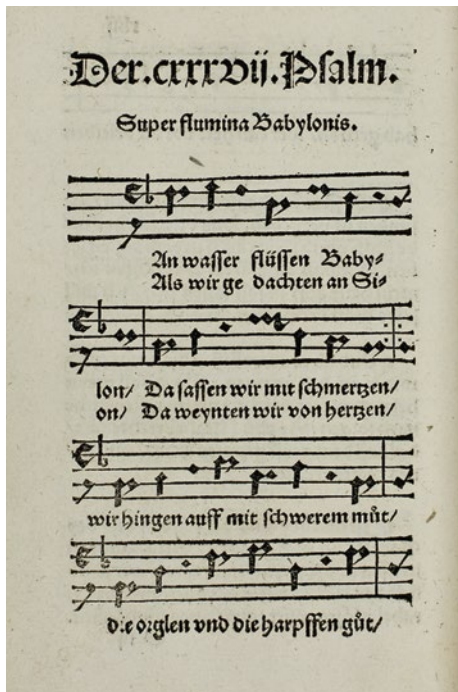 Der.cxxxvij.Psalm.
Super flumina Babylonis.
An wasser flüssen Baby⸗
Als wir ge dachten an Si⸗
lon/ Da sassen wir mit schmertzen/
on/ Da weynten wir von hertzen/
wir hingen auff mit schwerem můt/
die orglen vnd die harpffen gůt/